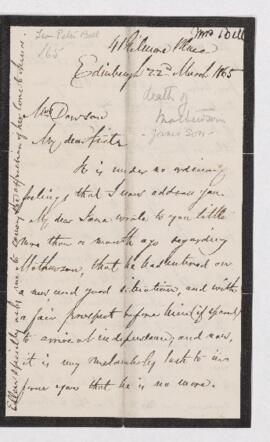 Mrs Bell
165
41 Gilmore Place
Edinburgh 22nd March 1865
death of
Matherson
Janes Son
Mrs Dawson
My dear Sister
It is under no ordinary
feelings that I now address you.
My dear Jana wrote to you little
more than a month ago regarding
Matherson, that he had entered on
a new and good situation, and with
a fair prospect before him if spared
to arrive at independence, and now,
it is my melancholy task to in
you that he is no more.
Ellen specially asks me to convey the affection of her love